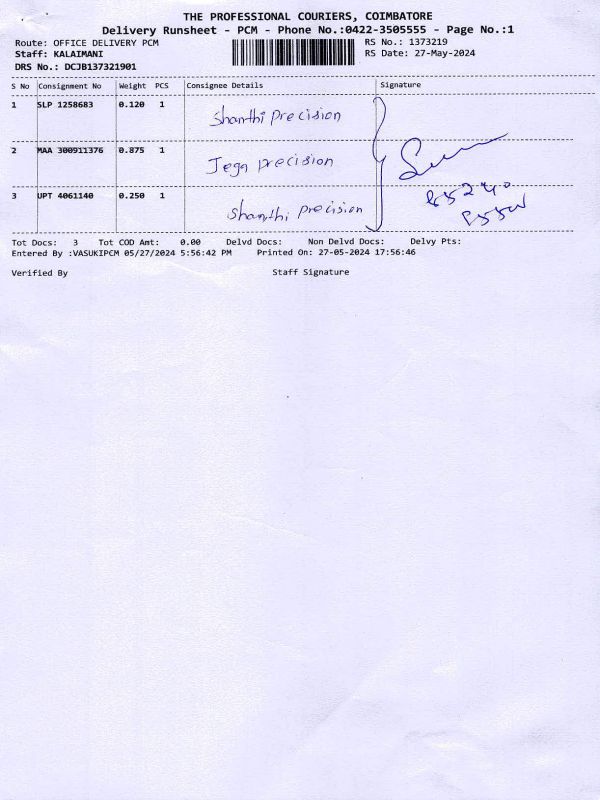 THE PROFESSIONAL COURIERS, COIMBATORE
Delivery Runsheet - PCM - Phone No.:0422-3505555 - Page No.:1
Route: OFFICE DELIVERY PCM RS No.: 1373219
Staff: KALAIMANI RS Date: 27-May-2024
DRS No.: DCJB137321901
S No Consignment No Weight PCS Consignee Details Signature
1 SLP 1258683 0.120 1 Shanthi precision
2 MAA 300911376 0.875 1 Jega precision
3 UPT 4061140 0.250 1 Shanthi precision
Tot Docs: 3 Tot COD Amt: 0.00 Delvd Docs: Non Delvd Docs: Delvy Pts:
Entered By :VASUKIPCM 05/27/2024 5:56:42 PM Printed On: 27-05-2024 17:56:46
Verified By Staff Signature